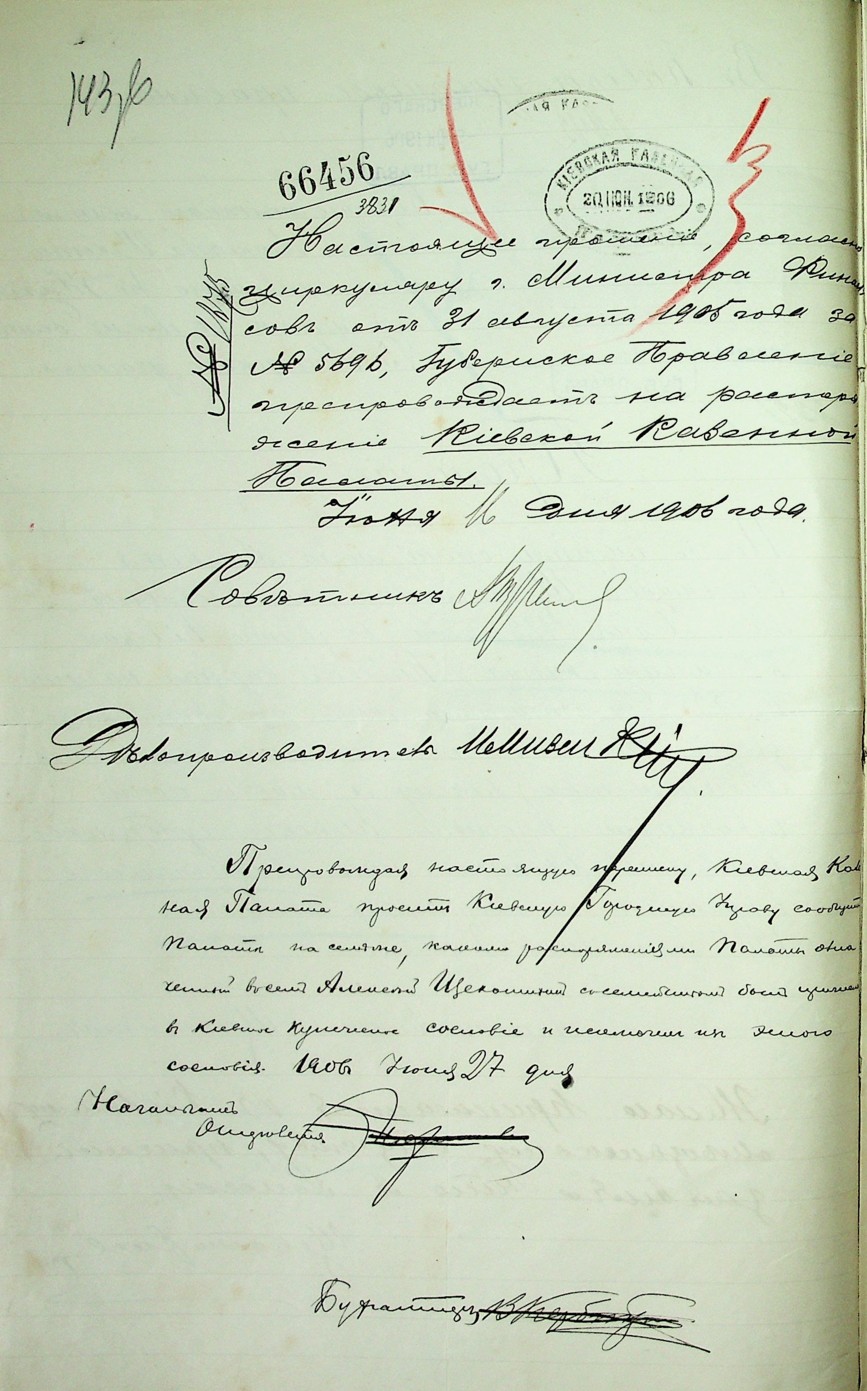 143
66456
3831
КІЕВСКАЯ КАЗЕННАЯ
20 ІЮН. 1906
Настоящее прошеніе, согласно
циркуляру г. Министра Финан
совъ отъ 31 августа 1905 года за
№ 5696, Губернское Правленіе
препровождаетъ на распоря
женіе Кіевской Казенной
Палаты.
Іюня 16 дня 1906 года.
Совѣтникъ
Дѣлопроизводитель
Препровождая настоящую переписку, Кіевская Каз
ная Палата проситъ Кіевскую Городскую Управу сообщить
Палатѣ на семъ же, какими распоряженіями Палаты озна
ченный въ семъ Алексѣй Щекотихинъ съ семействомъ былъ причисленъ
въ Кіевское купеческое сословіе и исключенъ изъ этого
сословія. 1906 Іюня 27 дня
Начальникъ
Отдѣленія
Бухгалтеръ